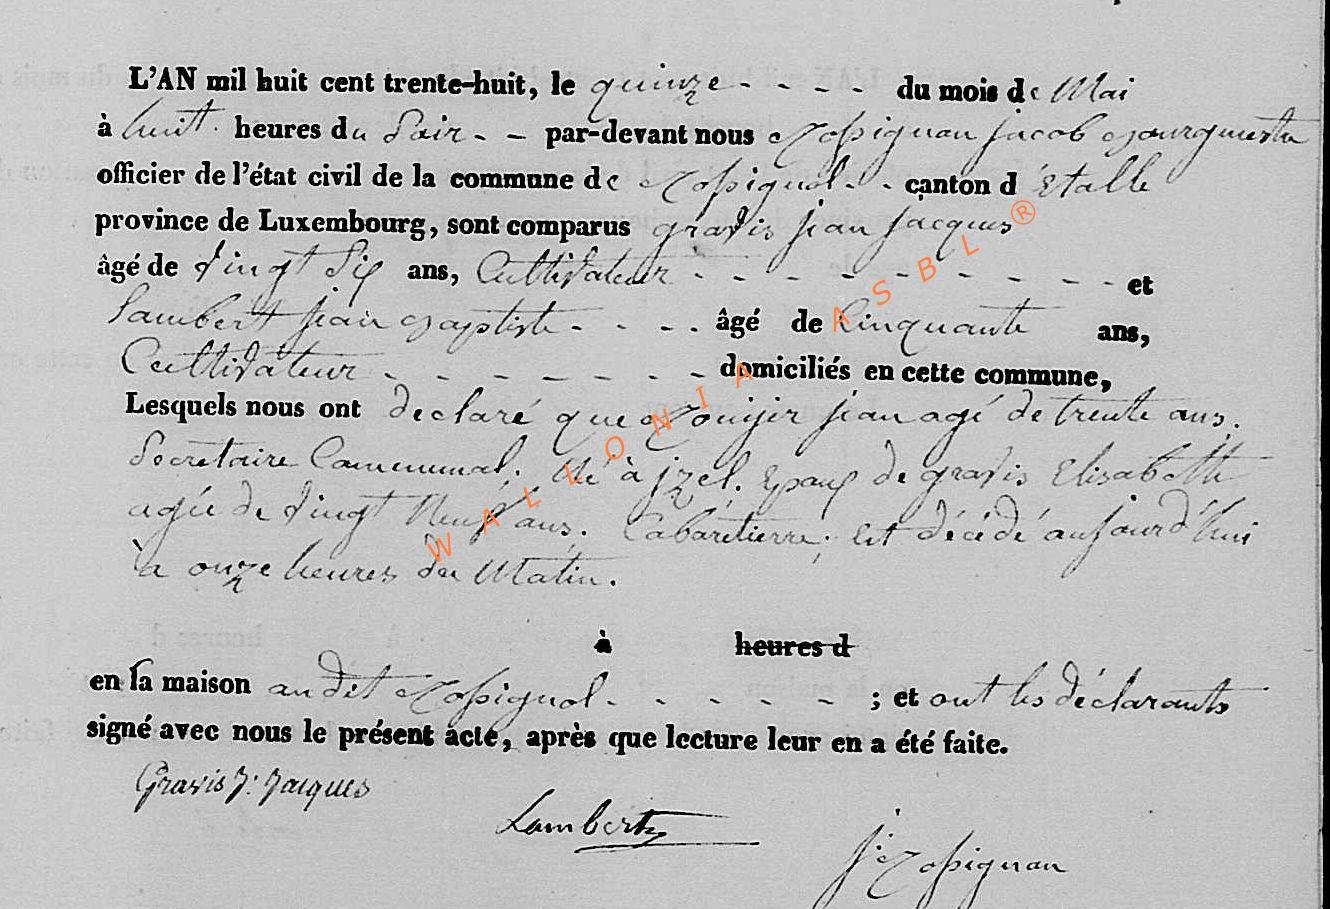 L'AN mil huit cent trente-huit, le quinze - - - - du mois de Mai
à huit heures du Soir - - par-devant nous Rossignon jacob Bourguestre
officier de l'état civil de la commune de Rossignol - - canton d'Etalle
province de Luxembourg, sont comparus gravis jean jacques
âgé de vingt Six ans, Cultivateur - - - - - - - - - - et
Lambert jean Baptiste - - - - âgé de Cinquante ans,
Cultivateur - - - - - - - - domiciliés en cette commune,
Lesquels nous ont declaré que jean agé de trente ans.
Secretaire Communal. Né à jzel. Epoux de gravis Elisabeth
agée de vingt Neuf ans. Cabaretierre; est décédé aujourd'hui
à onze heures du Matin.
à heures d
en la maison au dit Rossignol - - - - - ; et ont les déclarants
signé avec nous le présent acte, après que lecture leur en a été faite.
Gravis J. Jacques
Lambert
j. Rossignon
WALLONIA ASBL ®